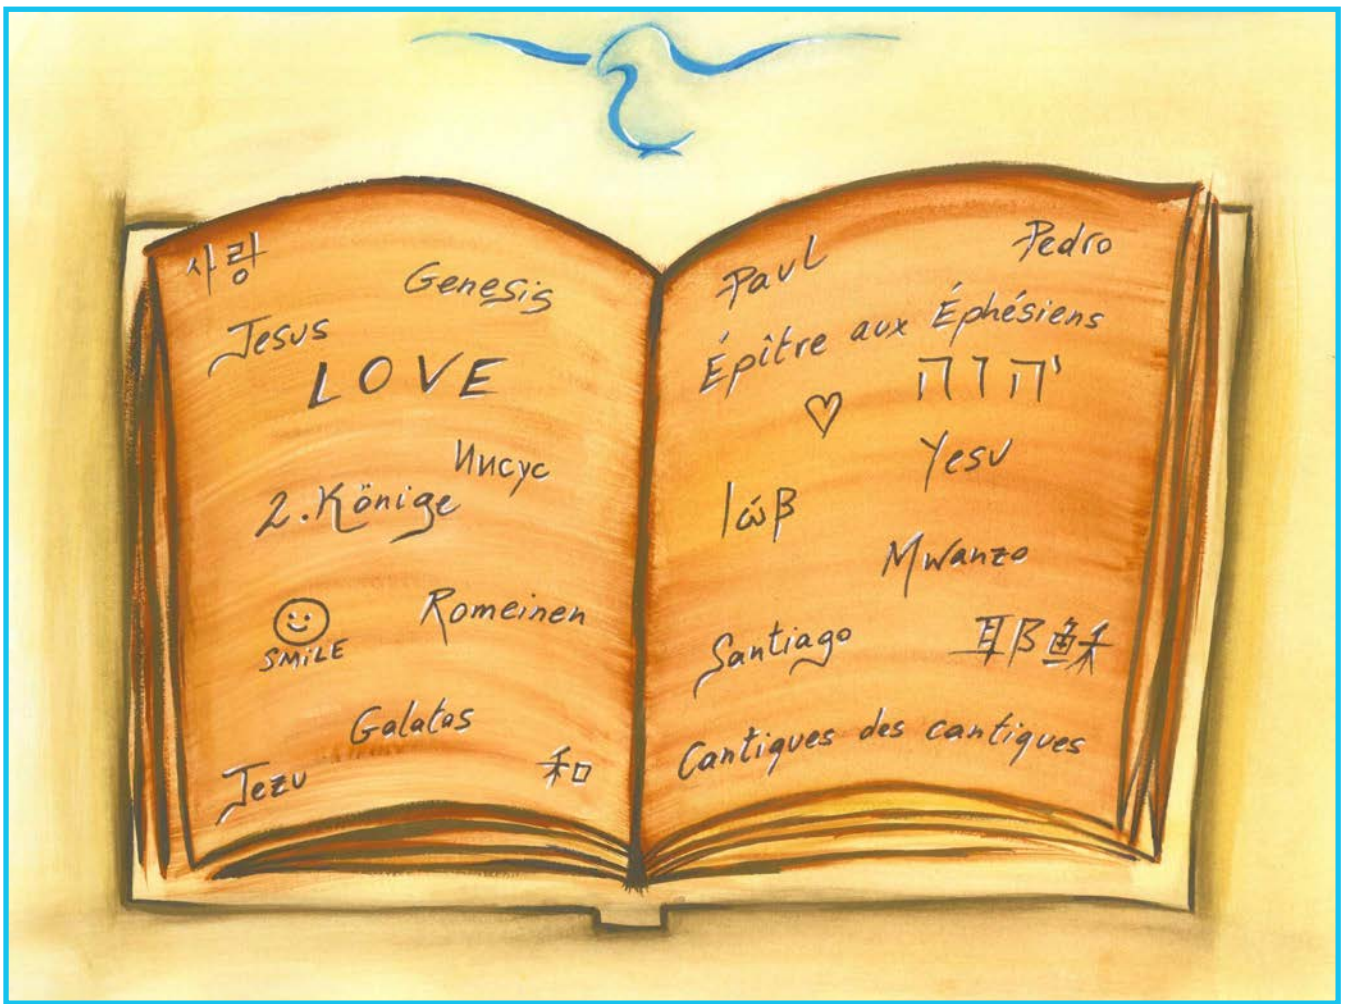 사랑
Genesis
Jesus
LOVE
Иисус
2. Könige
Romeinen
SMiLE
Galatas
和
Jezu
Paul
Pedro
Épître aux Éphésiens
יהוה
Yesu
Ιώβ
Mwanzo
Santiago
耶穌
Cantiques des cantiques